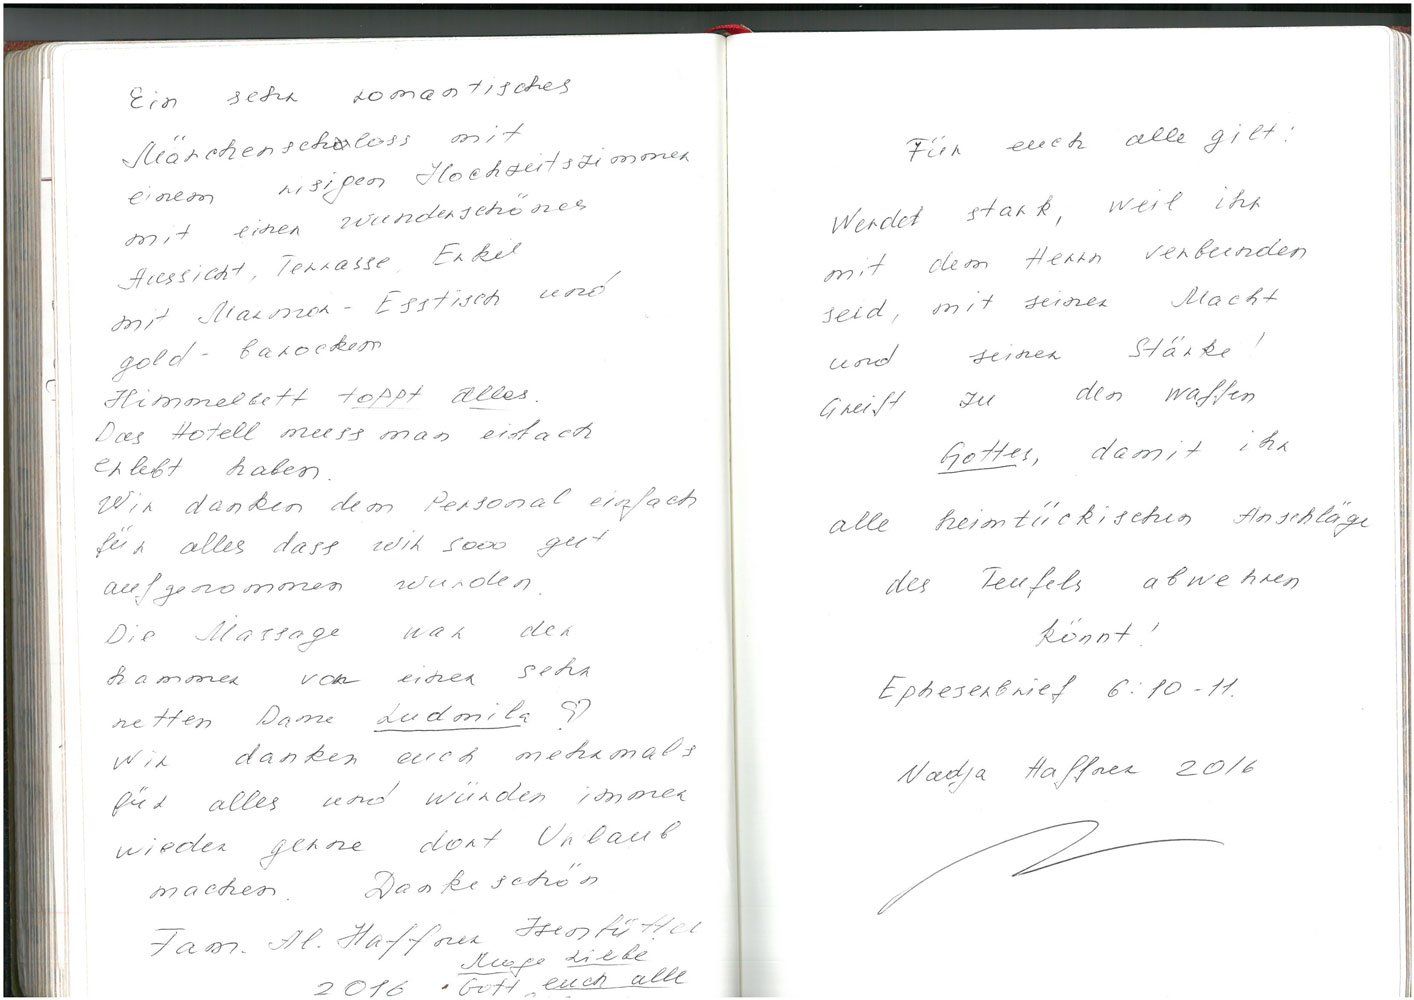 Ein sehr romantisches
Märchenschloss mit
einem risigen Hochzeitszimmer
mit einer wunderschönes
Aussicht, Terrasse, Erkel
mit Marmor-Esstisch und
gold-barockem
Himmelbett toppt alles.
Das Hotell muss man einfach
erlebt haben.
Wir danken dem Personal einfach
für alles dass wir sooo gut
aufgenommen wurden.
Die Massage war der
hammer von einer sehr
netten Dame Ludmila
Wir danken euch mehrmals
für alles und würden immer
wieder gerne dort Urlaub
machen. Dankeschön
Fam. Al. Haffner Isenbüttel
2016 Möge Liebe
Gott euch alle
Für euch alle gilt:
Werdet stark, weil ihr
mit dem Herrn verbunden
seid, mit seiner Macht
und seiner Stärke!
Greift zu den Waffen
Gottes, damit ihr
alle heimtückischen Anschläge
des Teufels abwehren
könnt!
Epheserbrief 6:10-11.
Nadja Haffner 2016